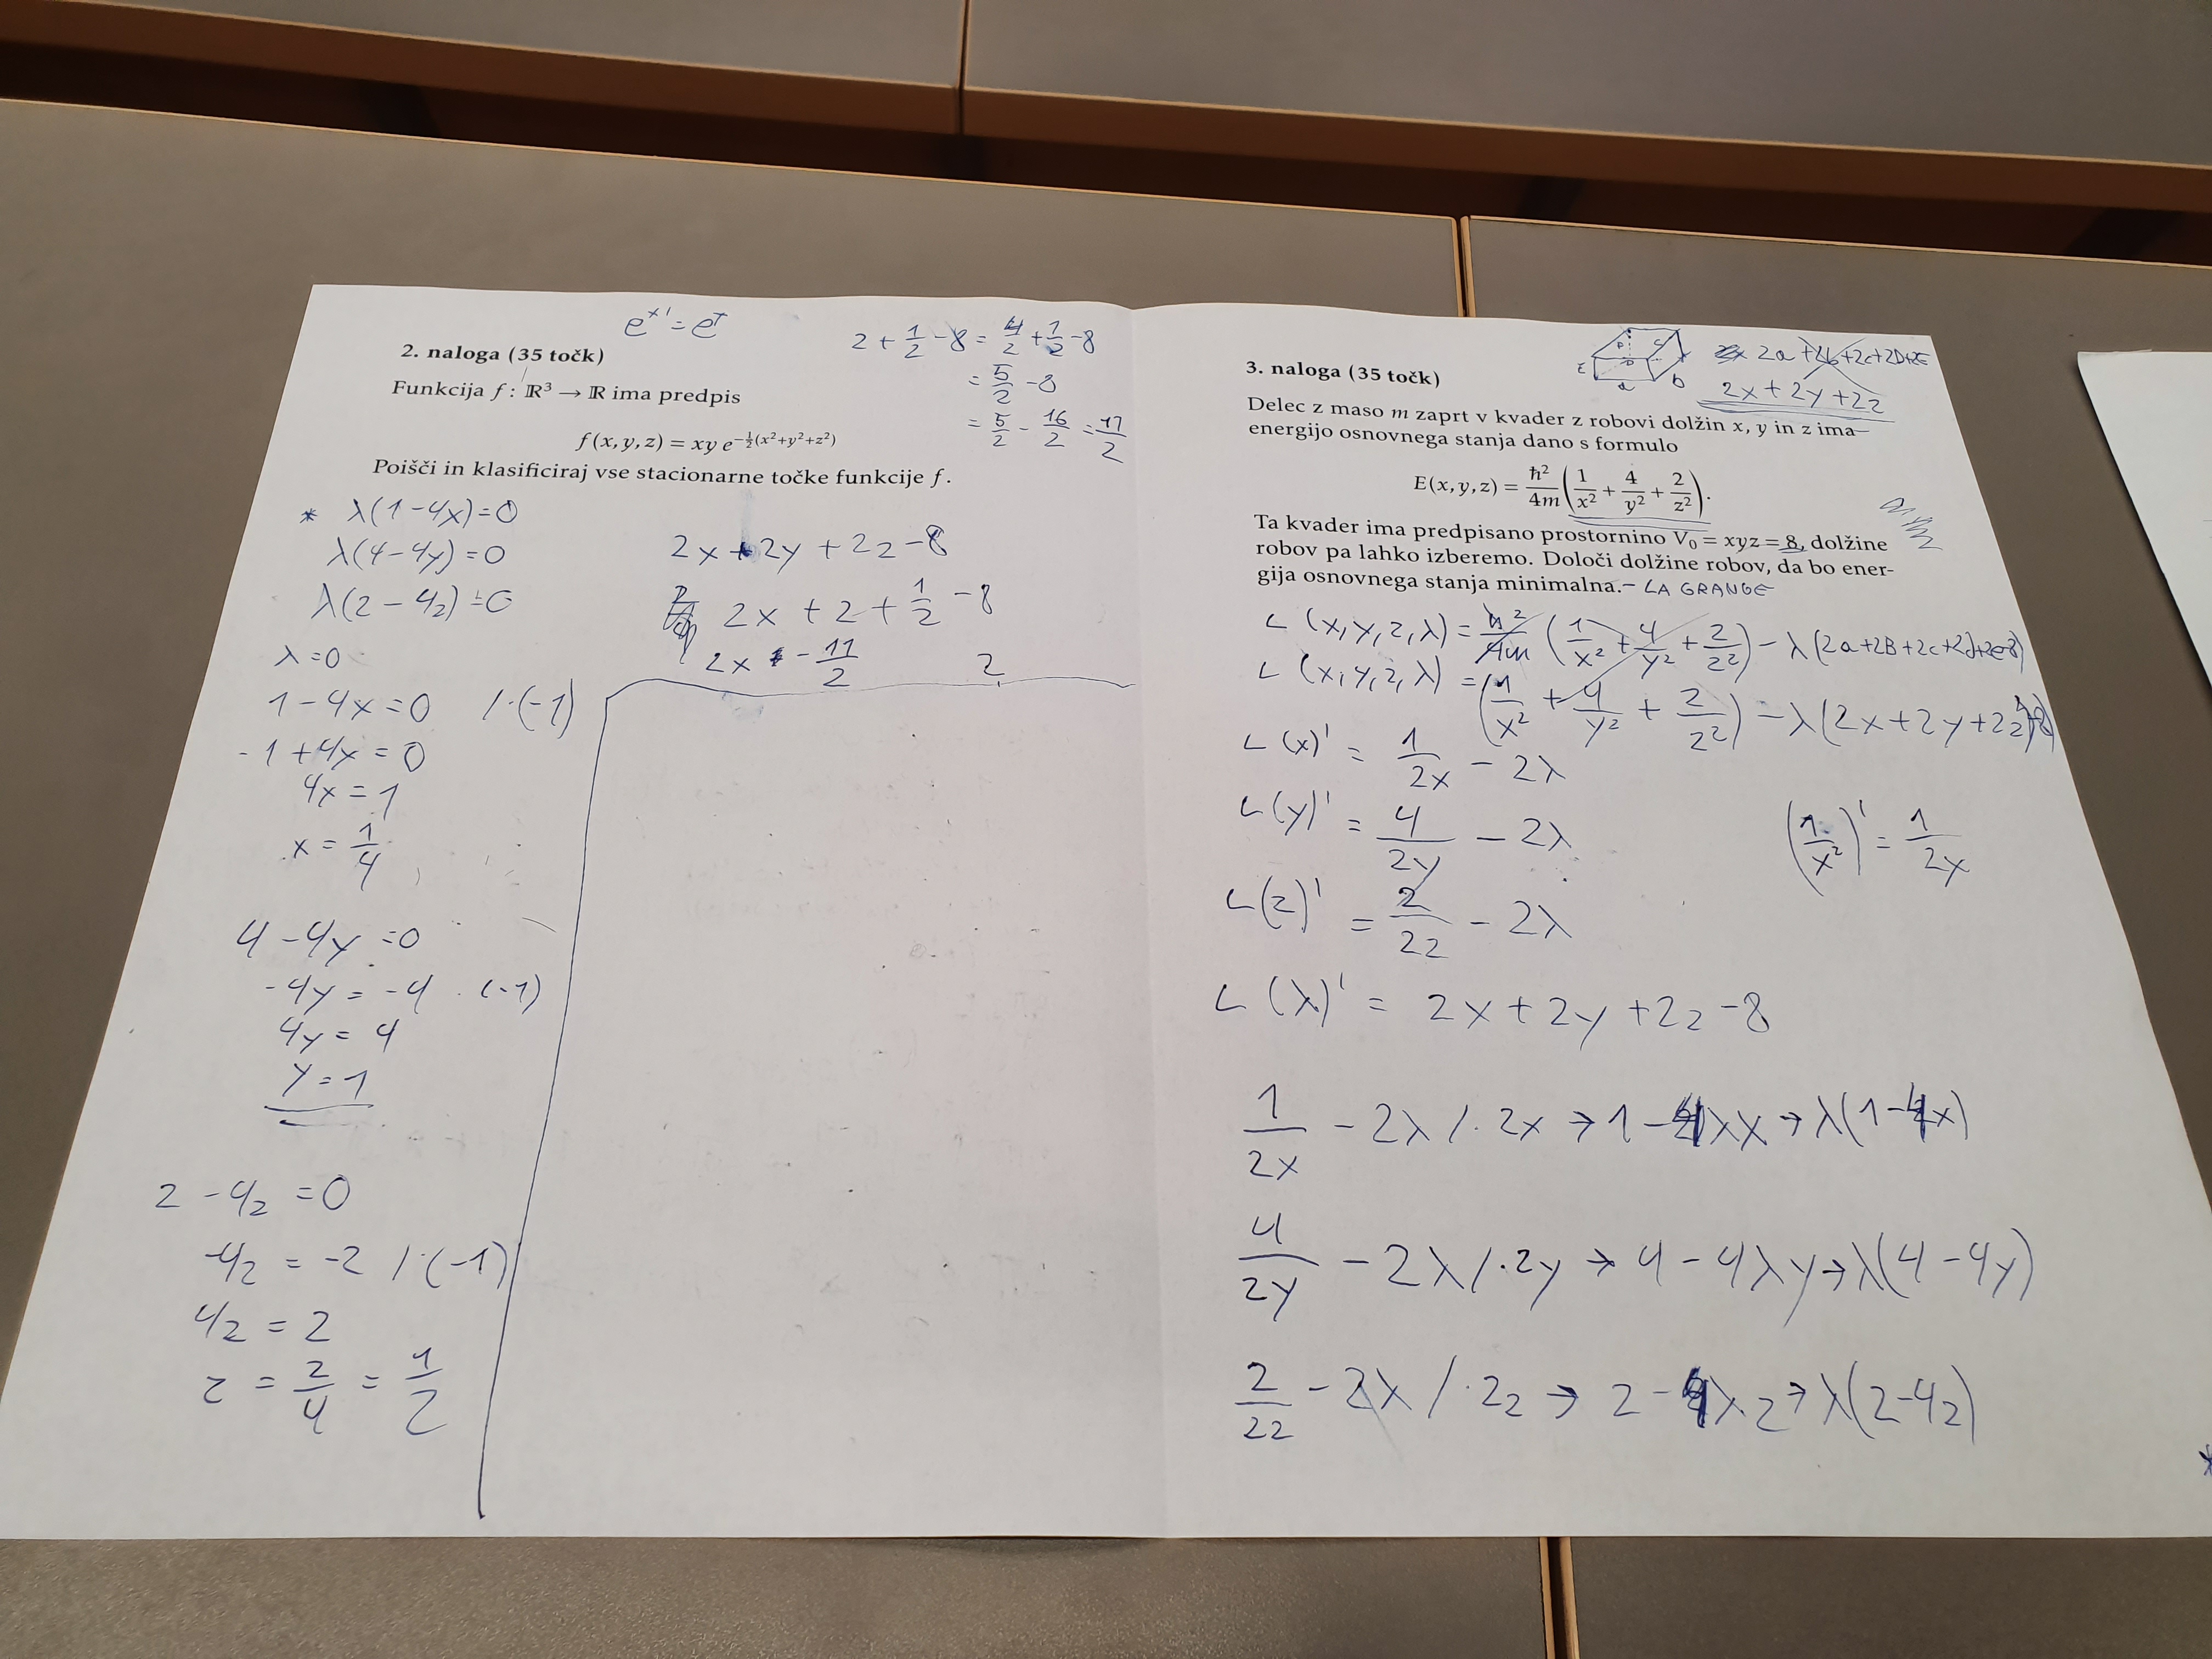 e^x' = e^x
2 + 1/2 - 8 = 4/2 + 1/2 - 8
= 5/2 - 8
= 5/2 - 16/2 = 11/2
2. naloga (35 točk)
Funkcija f : ℝ³ → ℝ ima predpis
f(x, y, z) = xy e^{-1/2(x²+y²+z²)}
Poišči in klasificiraj vse stacionarne točke funkcije f.
* λ(1-4x)=0
λ(4-4y)=0
λ(2-4z)=0
λ=0
1-4x=0 /·(-1)
-1+4x=0
4x=1
x = 1/4
4-4y=0
-4y=-4 ·(-1)
4y=4
y=1
2-4z=0
-4z=-2 /·(-1)
4z=2
z = 2/4 = 1/2
2x+2y+2z-8
2x+2+1/2-8
2x - 11/2
2
3. naloga (35 točk)
a b
2a+2b+2c+2D+2E
2x+2y+2z
Delec z maso m zaprt v kvader z robovi dolžin x, y in z ima
energijo osnovnega stanja dano s formulo
E(x, y, z) = ħ²/4m (1/x² + 4/y² + 2/z²).
Ta kvader ima predpisano prostornino V₀ = xyz = 8, dolžine
robov pa lahko izberemo. Določi dolžine robov, da bo ener-
gija osnovnega stanja minimalna. - LA GRANGE
L (x,y,z,λ) = ħ²/4m (1/x² + 4/y² + 2/z²) - λ(2a+2B+2c+2d+2e-8)
L (x,y,z,λ) = (1/x² + 4/y² + 2/z²) - λ(2x+2y+2z-8)
L (x)' = 1/2x - 2λ
L (y)' = 4/2y - 2λ
(1/x²)' = 1/2x
L (z)' = 2/2z - 2λ
L (λ)' = 2x+2y+2z-8
1/2x - 2λ /·2x → 1-4λx → λ(1-4x)
4/2y - 2λ /·2y → 4-4λy → λ(4-4y)
2/2z - 2λ /·2z → 2-4λz → λ(2-4z)